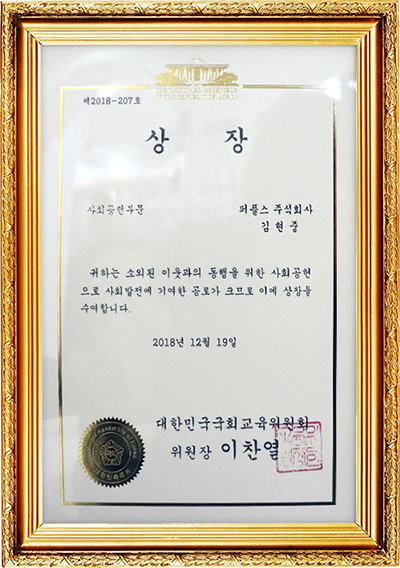 THE NATIONAL ASSEMBLY
OF THE REPUBLIC OF KOREA
제2018-207호
상 장
사회공헌부문
퍼플스 주식회사
김현중
귀하는 소외된 이웃과의 동행을 위한 사회공헌
으로 사회발전에 기여한 공로가 크므로 이에 상장을
수여합니다.
2018년 12월 19일
대한민국국회교육위원회
위원장 이찬열